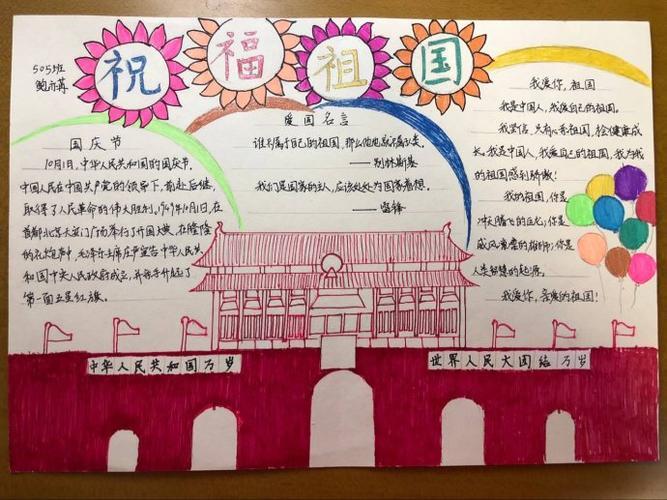 祝福祖国
505班
鲍亦苒
国庆节
10月1日,中华人民共和国的国庆节。
中国人民在中国共产党的领导下,前赴后继,
取得了人民革命的伟大胜利。1949年10月1日,在
首都北京天安门广场举行了开国大典,在隆隆
的礼炮声中,毛泽东主席庄严宣告中华人民共
和国中央人民政府成立,并亲手升起了
第一面五星红旗。
爱国名言
谁不属于自己的祖国,那么他也就不属于人类。
——别林斯基
我们是国家的主人,应该处处为国家着想。
——雷锋
我爱你,祖国
我是中国人,我爱自己的祖国。
我坚信,大树心香祖国,会健康成
长。我是中国人,我爱自己的祖国,我为我
的祖国感到骄傲!
我的祖国,你是
冲天腾飞的巨龙;你是
威风凛凛的雄狮;你是
人类智慧的起源。
我爱你,亲爱的祖国!
中华人民共和国万岁
世界人民大团结万岁